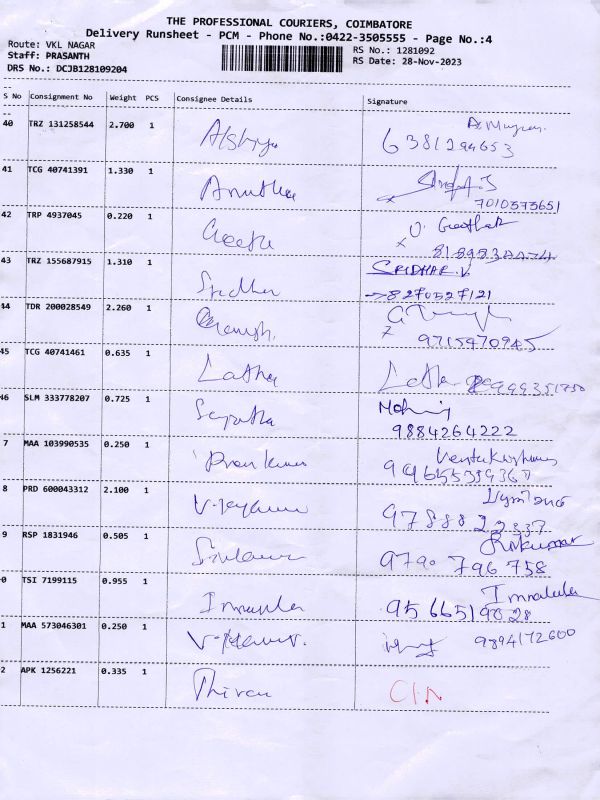 THE PROFESSIONAL COURIERS, COIMBATORE
Delivery Runsheet - PCM - Phone No.:0422-3505555 - Page No.:4
Route: VKL NAGAR
Staff: PRASANTH
DRS No.: DCJB128109204
RS No.: 1281092
RS Date: 28-Nov-2023
S No Consignment No Weight PCS Consignee Details Signature
40 TRZ 131258544 2.700 1
6381294653
41 TCG 40741391 1.330 1 Anutha
7010575651
42 TRP 4937045 0.220 1 Geetha
43 TRZ 155687915 1.310 1 Sridhar SRIDHAR.V
8270527121
44 TDR 200028549 2.260 1
9715470945
45 TCG 40741461 0.635 1 Latha Latha
46 SLM 333778207 0.725 1
9884264222
7 MAA 103990535 0.250 1
8 PRD 600043312 2.100 1
97888 22337
9 RSP 1831946 0.505 1
9790 796 758
0 TSI 7199115 0.955 1
95 66519028
1 MAA 573046301 0.250 1 9894172600
2 APK 1256221 0.335 1